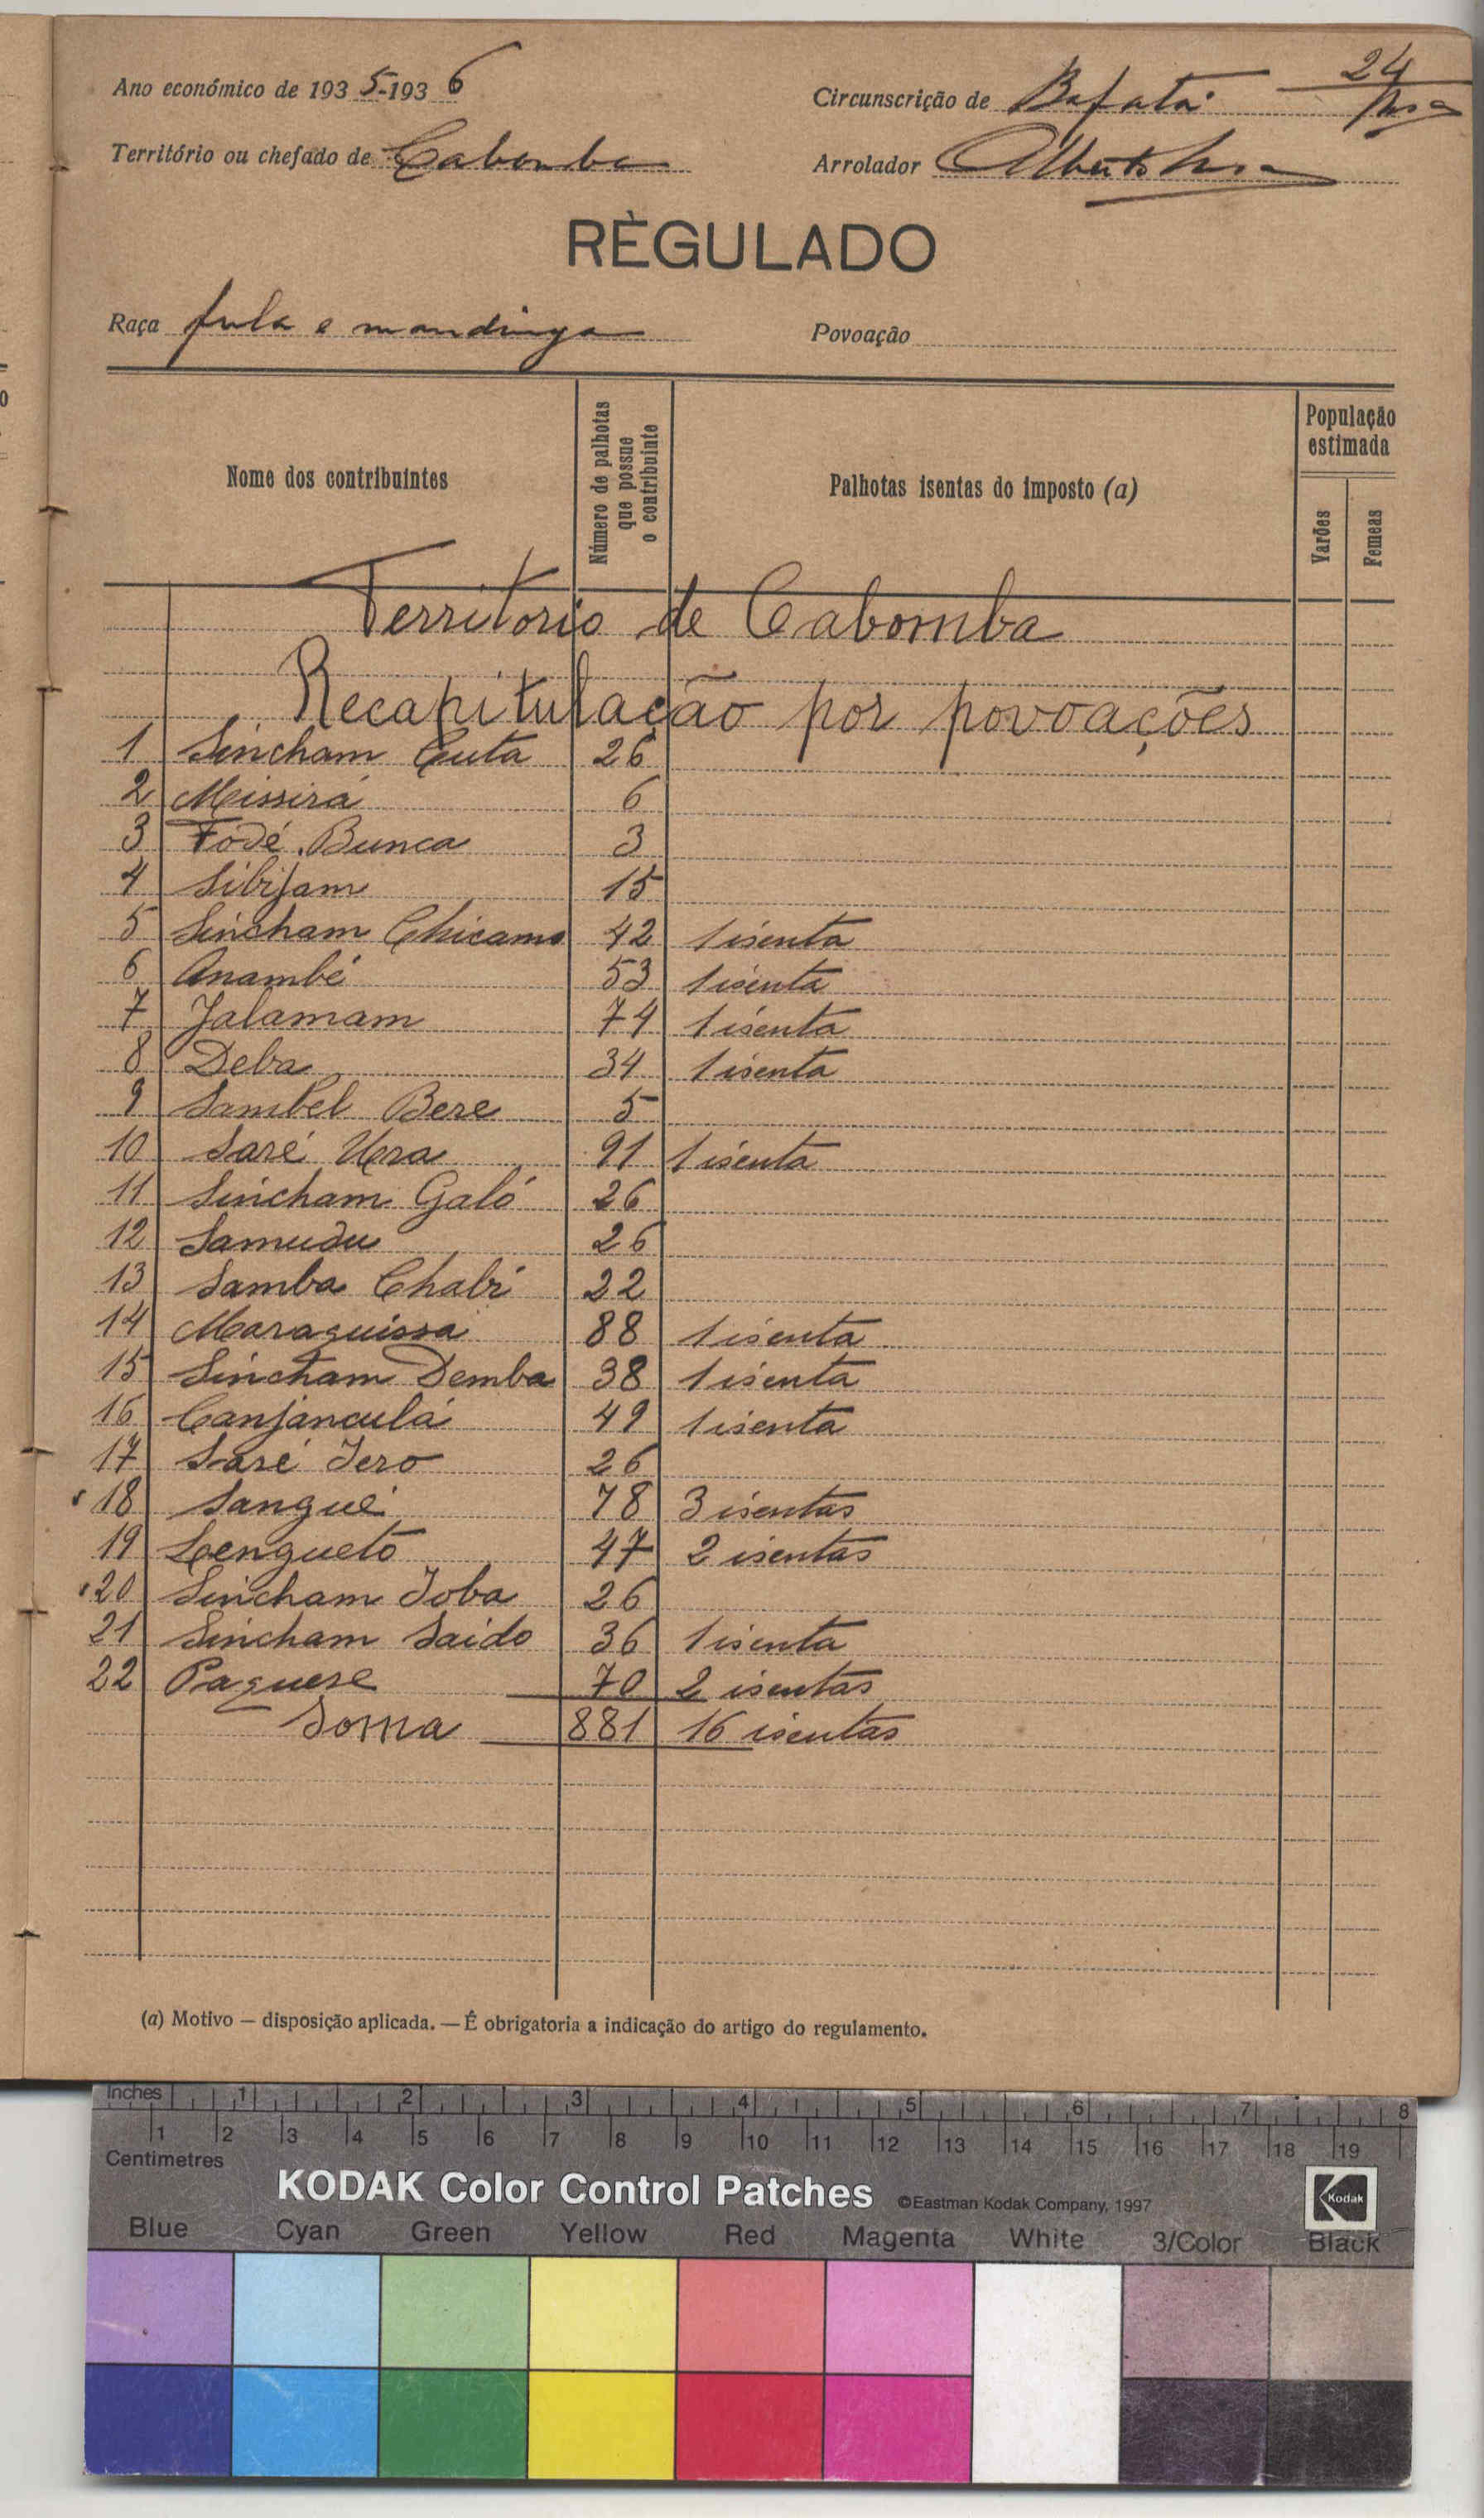 Ano económico de 1935-1936
Circunscrição de Bafatá 24
Território ou chefado de Cabomba
Arrolador Alberto
RÈGULADO
Raça fula e mandinga
Povoação
Nome dos contribuintes
Número de palhotas que possue o contribuinte
Palhotas isentas do imposto (a)
População estimada
Varões
Femeas
Territorio de Cabomba
Recapitulação por povoações
1 Sincham Ceuta 26
2 Missirá 6
3 Fódé Bunca 3
4 Sibijam 15
5 Sincham Chicamo 42 1 isenta
6 Anambé 53 1 isenta
7 Jalamam 74 1 isenta
8 Deba 34 1 isenta
9 Sambel Bere 5
10 Saré Uera 91 1 isenta
11 Sincham Galó 26
12 Samudu 26
13 Samba Chabi 22
14 Maraquissa 88 1 isenta
15 Sincham Demba 38 1 isenta
16 Canjanculá 49 1 isenta
17 Saré Iero 26
18 Sangué 78 3 isentas
19 Lenguetó 47 2 isentas
20 Sincham Ioba 26
21 Sincham Saido 36 1 isenta
22 Paquese 70 2 isentas
Soma 881 16 isentas
(a) Motivo — disposição aplicada. — É obrigatoria a indicação do artigo do regulamento.
Inches 1 2 3 4 5 6 7 8
1 2 3 4 5 6 7 8 9 10 11 12 13 14 15 16 17 18 19
Centimetres
KODAK Color Control Patches ©Eastman Kodak Company, 1997 Kodak
Blue Cyan Green Yellow Red Magenta White 3/Color Black